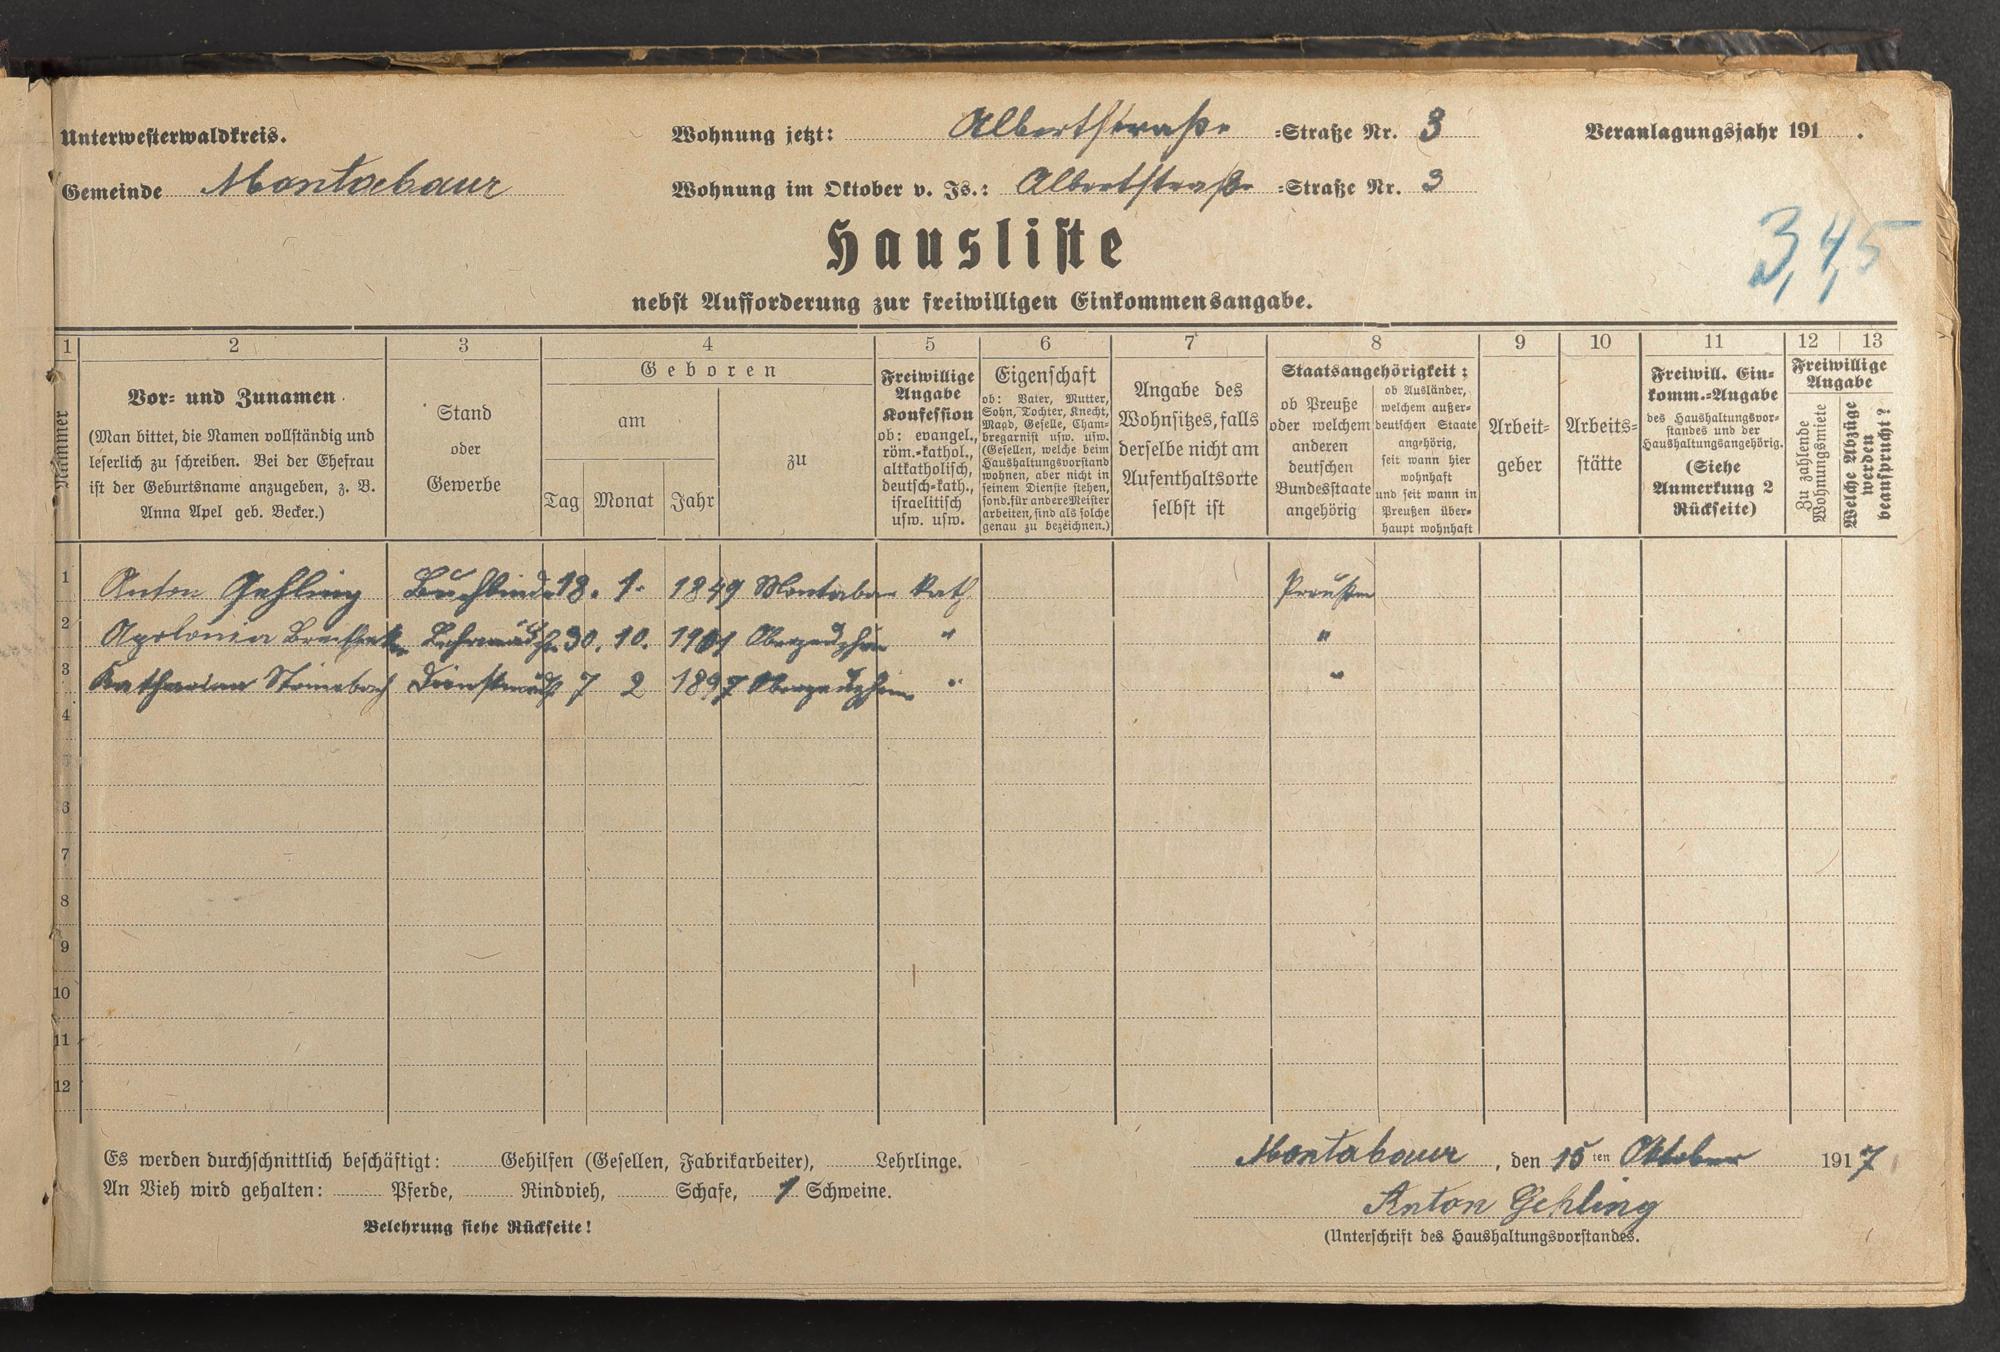 Unterwesterwaldkreis.
Wohnung jetzt: Albertstraße =Straße Nr. 3
Veranlagungsjahr 191 .
Gemeinde Montabaur
Wohnung im Oktober v. Js.: Albertstraße =Straße Nr. 3
Hausliste
3,4,5
nebst Aufforderung zur freiwilligen Einkommensangabe.
1 2 3 4 5 6 7 8 9 10 11 12 13
Nummer
Vor= und Zunamen
(Man bittet, die Namen vollständig und
leserlich zu schreiben. Bei der Ehefrau
ist der Geburtsname anzugeben, z. B.
Anna Apel geb. Becker.)
Stand
oder
Gewerbe
Geboren
am
Tag Monat Jahr
zu
Freiwillige
Angabe
Konfession
ob: evangel.,
röm.=kathol.,
altkatholisch,
deutsch=kath.,
israelitisch
usw. usw.
Eigenschaft
ob: Vater, Mutter,
Sohn, Tochter, Knecht,
Magd, Geselle, Cham=
bregarnist usw. usw.
(Gesellen, welche beim
Haushaltungsvorstand
wohnen, aber nicht in
seinem Dienste stehen,
sond. für andere Meister
arbeiten, sind als solche
genau zu bezeichnen.)
Angabe des
Wohnsitzes, falls
derselbe nicht am
Aufenthaltsorte
selbst ist
Staatsangehörigkeit:
ob Preuße
oder welchem
anderen
deutschen
Bundesstaate
angehörig
ob Ausländer,
welchem außer=
deutschen Staate
angehörig,
seit wann hier
wohnhaft
und seit wann in
Preußen über=
haupt wohnhaft
Arbeit=
geber
Arbeits=
stätte
Freiwill. Ein=
komm.=Angabe
des Haushaltungsvor=
standes und der
Haushaltungsangehörig.
(Siehe
Anmerkung 2
Rückseite)
Freiwillige
Angabe
Zu zahlende
Wohnungsmiete
Welche Abzüge
werden
beansprucht?
1 Anton Gehling Buchbinder 18. 1. 1849 Montabaur kath Preußen
2 Apolonia 30. 10. 1901 " "
3 Katharina Steinebach Dienstmädch 7 2 1897 " "
4
5
6
7
8
9
10
11
12
Es werden durchschnittlich beschäftigt: Gehilfen (Gesellen, Fabrikarbeiter), Lehrlinge.
An Vieh wird gehalten: Pferde, Rindvieh, Schafe, 1 Schweine.
Belehrung siehe Rückseite!
Montabaur, den 15ten Oktober 1917
Anton Gehling
(Unterschrift des Haushaltungsvorstandes.